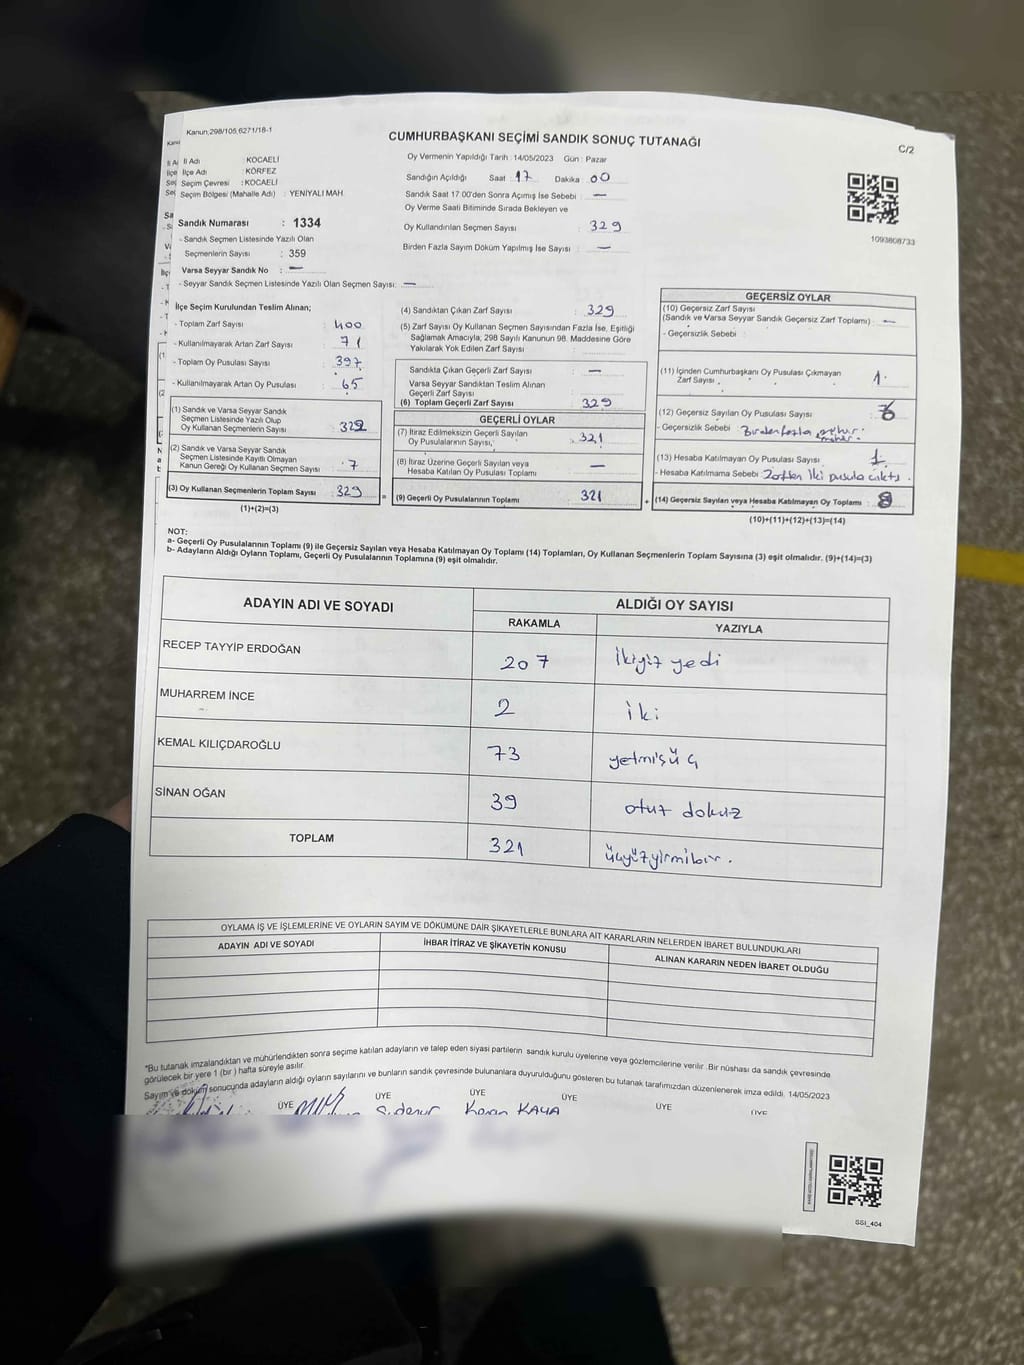 Kanun,298/105,6271/18-1
CUMHURBAŞKANI SEÇİMİ SANDIK SONUÇ TUTANAĞI
C/2
İl Adı : KOCAELİ
İlçe Adı : KÖRFEZ
Seçim Çevresi : KOCAELİ
Seçim Bölgesi (Mahalle Adı) : YENİYALI MAH.
Sandık Numarası : 1334
- Sandık Seçmen Listesinde Yazılı Olan
Seçmenlerin Sayısı : 359
Varsa Seyyar Sandık No : —
- Seyyar Sandık Seçmen Listesinde Yazılı Olan Seçmen Sayısı: —
Oy Vermenin Yapıldığı Tarih : 14/05/2023 Gün : Pazar
Sandığın Açıldığı Saat 17 Dakika 00
Sandık Saat 17.00'den Sonra Açılmış İse Sebebi : —
Oy Verme Saati Bitiminde Sırada Bekleyen ve
Oy Kullandırılan Seçmen Sayısı : 329
Birden Fazla Sayım Döküm Yapılmış İse Sayısı : —
1093808733
İlçe Seçim Kurulundan Teslim Alınan;
- Toplam Zarf Sayısı : 400
- Kullanılmayarak Artan Zarf Sayısı : 71
- Toplam Oy Pusulası Sayısı : 397
- Kullanılmayarak Artan Oy Pusulası : 65
(1) Sandık ve Varsa Seyyar Sandık
Seçmen Listesinde Yazılı Olup
Oy Kullanan Seçmenlerin Sayısı : 322
(2) Sandık ve Varsa Seyyar Sandık
Seçmen Listesinde Kayıtlı Olmayan
Kanun Gereği Oy Kullanan Seçmen Sayısı : 7
(3) Oy Kullanan Seçmenlerin Toplam Sayısı : 329
(1)+(2)=(3)
(4) Sandıktan Çıkan Zarf Sayısı : 329
(5) Zarf Sayısı Oy Kullanan Seçmen Sayısından Fazla İse, Eşitliği
Sağlamak Amacıyla, 298 Sayılı Kanunun 98. Maddesine Göre
Yakılarak Yok Edilen Zarf Sayısı :
Sandıkta Çıkan Geçerli Zarf Sayısı : —
Varsa Seyyar Sandıktan Teslim Alınan
Geçerli Zarf Sayısı : —
(6) Toplam Geçerli Zarf Sayısı : 329
GEÇERLİ OYLAR
(7) İtiraz Edilmeksizin Geçerli Sayılan
Oy Pusulalarının Sayısı, : 321
(8) İtiraz Üzerine Geçerli Sayılan veya
Hesaba Katılan Oy Pusulası Toplamı : —
= (9) Geçerli Oy Pusulalarının Toplamı : 321
GEÇERSİZ OYLAR
(10) Geçersiz Zarf Sayısı
(Sandık ve Varsa Seyyar Sandık Geçersiz Zarf Toplamı) : —
- Geçersizlik Sebebi :
(11) İçinden Cumhurbaşkanı Oy Pusulası Çıkmayan
Zarf Sayısı : 1
(12) Geçersiz Sayılan Oy Pusulası Sayısı : 6
- Geçersizlik Sebebi
(13) Hesaba Katılmayan Oy Pusulası Sayısı : 1
- Hesaba Katılmama Sebebi : Zarftan iki pusula çıktı.
+ (14) Geçersiz Sayılan veya Hesaba Katılmayan Oy Toplamı : 8
(10)+(11)+(12)+(13)=(14)
NOT:
a- Geçerli Oy Pusulalarının Toplamı (9) ile Geçersiz Sayılan veya Hesaba Katılmayan Oy Toplamı (14) Toplamları, Oy Kullanan Seçmenlerin Toplam Sayısına (3) eşit olmalıdır. (9)+(14)=(3)
b- Adayların Aldığı Oyların Toplamı, Geçerli Oy Pusulalarının Toplamına (9) eşit olmalıdır.
ADAYIN ADI VE SOYADI ALDIĞI OY SAYISI
RAKAMLA YAZIYLA
RECEP TAYYİP ERDOĞAN 207 İkiyüz yedi
MUHARREM İNCE 2 iki
KEMAL KILIÇDAROĞLU 73 yetmişüç
SİNAN OĞAN 39 otuz dokuz
TOPLAM 321 üçyüzyirmibir.
OYLAMA İŞ VE İŞLEMLERİNE VE OYLARIN SAYIM VE DÖKÜMÜNE DAİR ŞİKAYETLERLE BUNLARA AİT KARARLARIN NELERDEN İBARET BULUNDUKLARI
ADAYIN ADI VE SOYADI İHBAR İTİRAZ VE ŞİKAYETİN KONUSU ALINAN KARARIN NEDEN İBARET OLDUĞU
*Bu tutanak imzalandıktan ve mühürlendikten sonra seçime katılan adayların ve talep eden siyasi partilerin sandık kurulu üyelerine veya gözlemcilerine verilir .Bir nüshası da sandık çevresinde
görülecek bir yere 1 (bir ) hafta süreyle asılır.
Sayım ve döküm sonucunda adayların aldığı oyların sayılarını ve bunların sandık çevresinde bulunanlara duyurulduğunu gösteren bu tutanak tarafımızdan düzenlenerek imza edildi. 14/05/2023
ÜYE ÜYE ÜYE ÜYE ÜYE ÜYE
KAYA
SSI_404